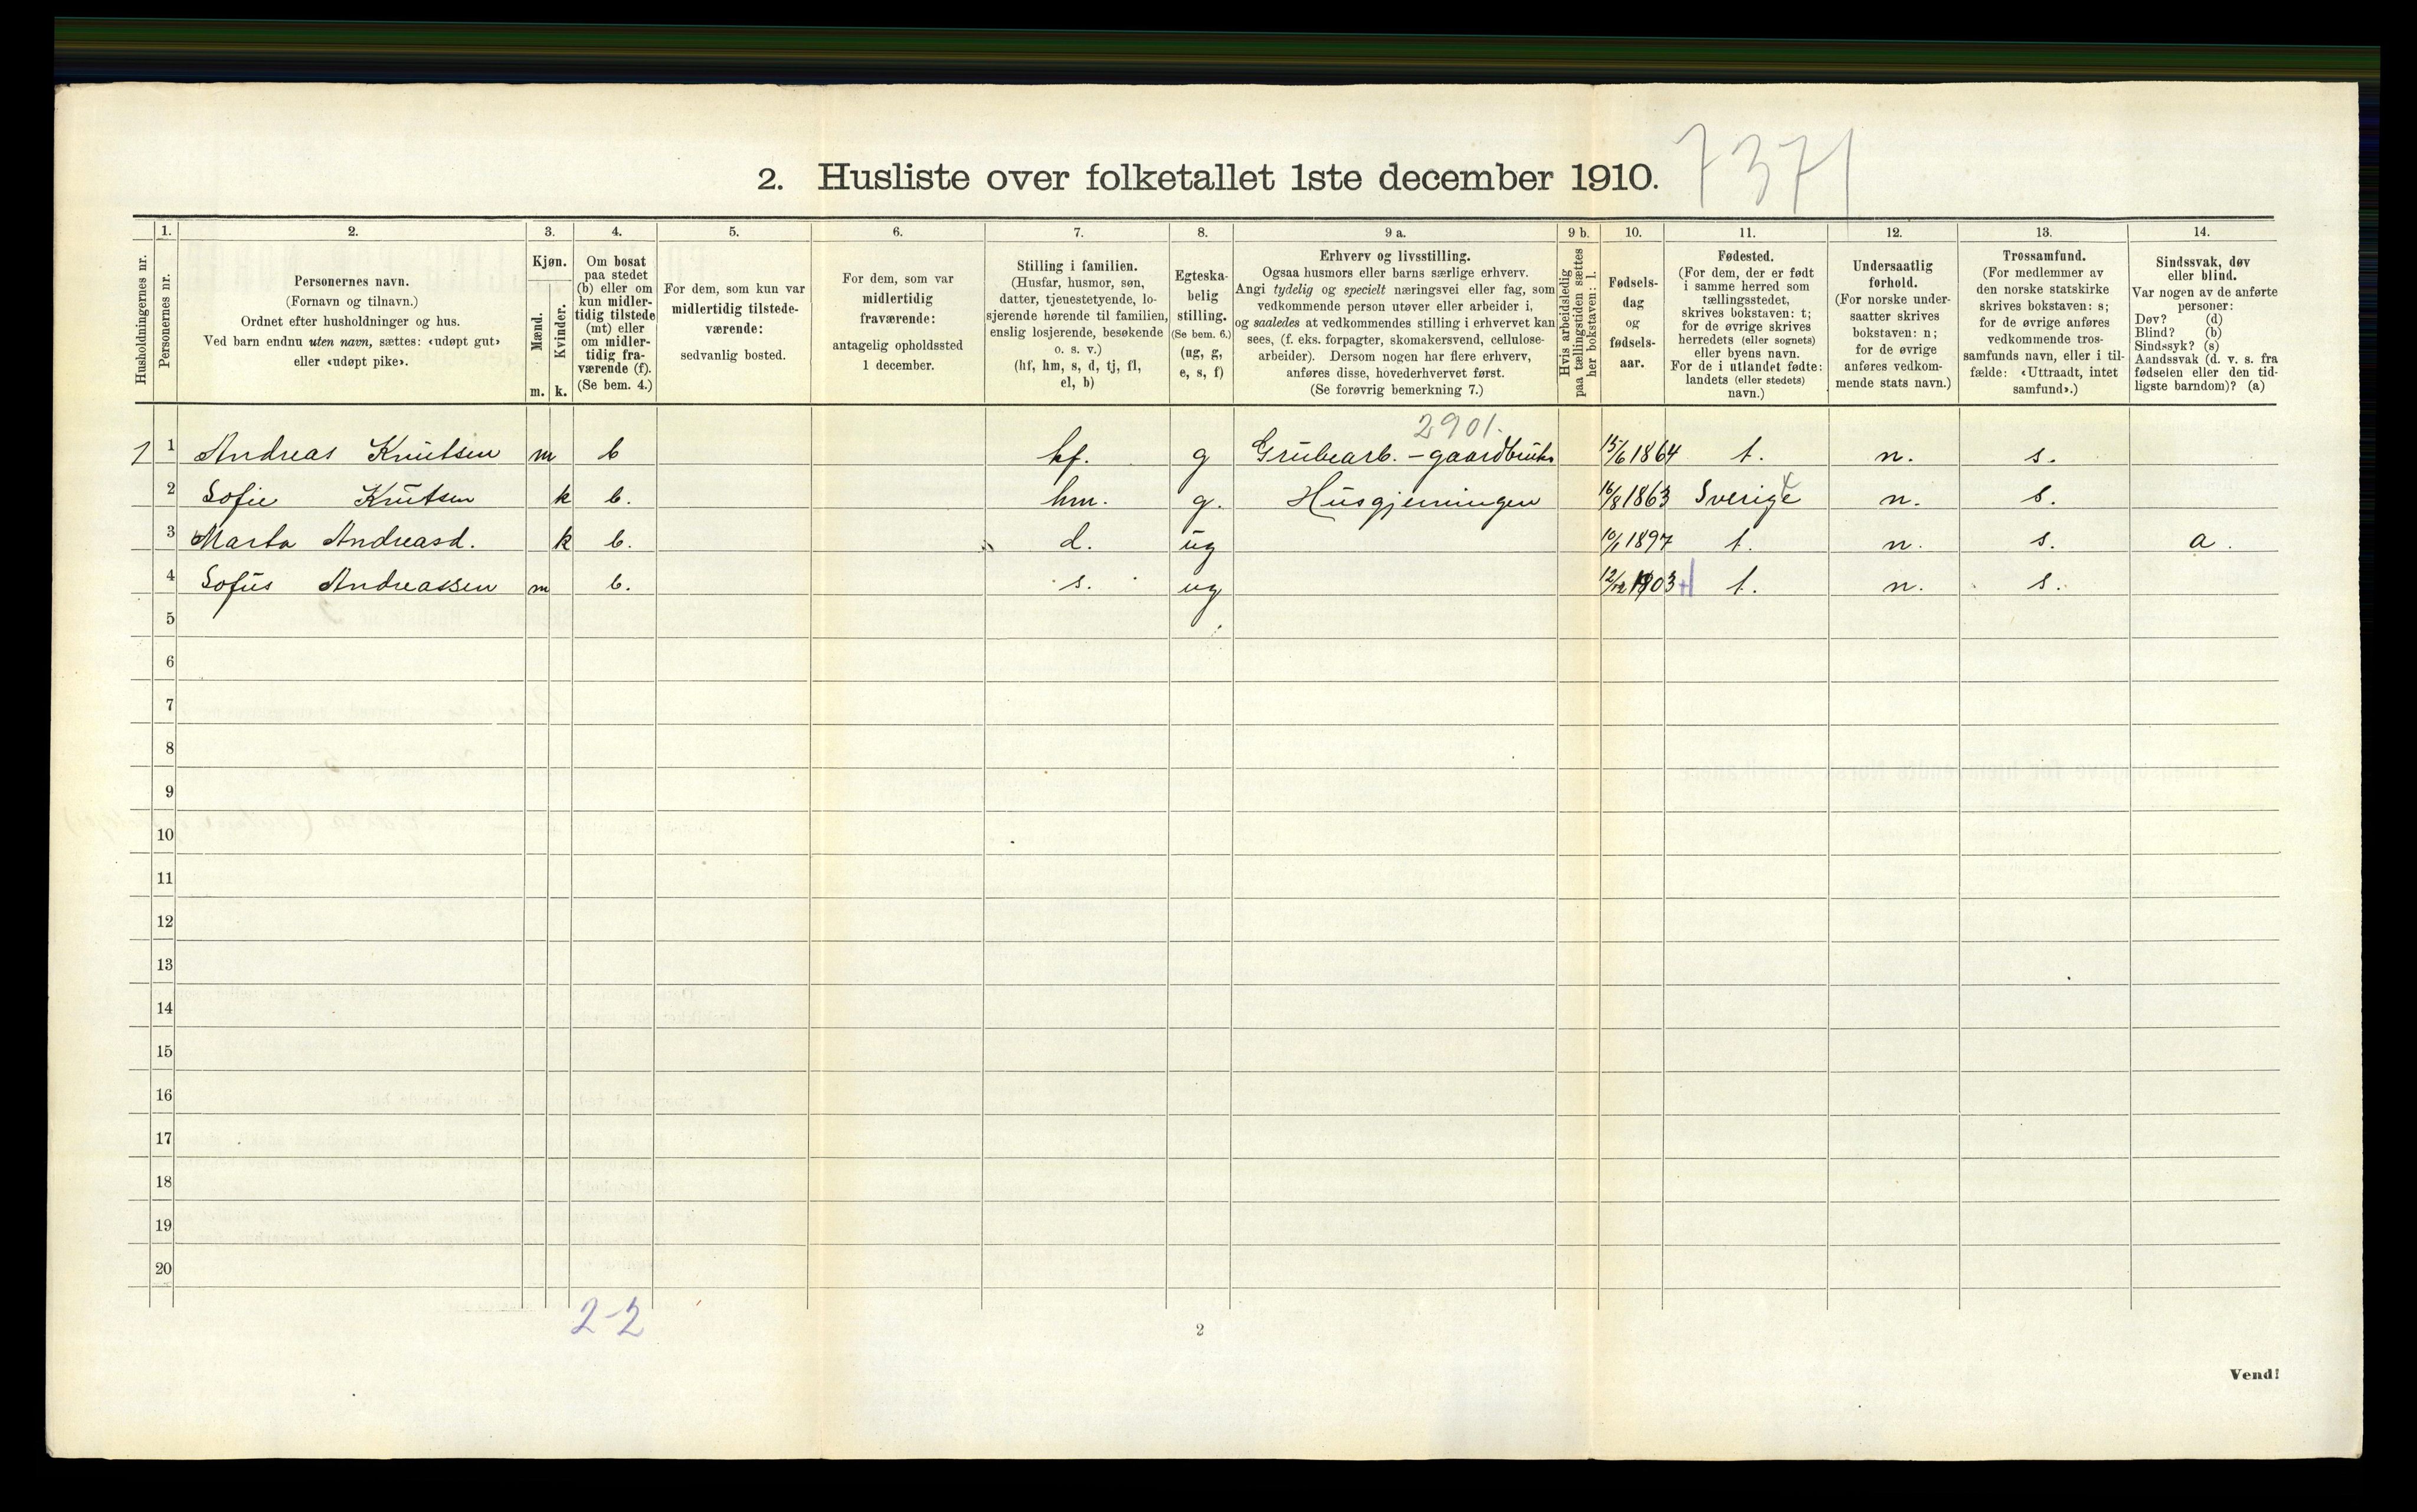 2. Husliste over folketallet 1ste december 1910. 7371
Husholdningernes nr.
1.
Personernes nr.
2.
Personernes navn.
(Fornavn og tilnavn.)
Ordnet efter husholdninger og hus.
Ved barn endnu uten navn, sættes: «udøpt gut»
eller «udøpt pike».
3.
Kjøn.
Mænd.
Kvinder.
m. k.
4.
Om bosat
paa stedet
(b) eller om
kun midler-
tidig tilstede
(mt) eller
om midler-
tidig fra-
værende (f).
(Se bem. 4.)
5.
For dem, som kun var
midlertidig tilstede-
værende:
sedvanlig bosted.
6.
For dem, som var
midlertidig
fraværende:
antagelig opholdssted
1 december.
7.
Stilling i familien.
(Husfar, husmor, søn,
datter, tjenestetyende, lo-
sjerende hørende til familien,
enslig losjerende, besøkende
o. s. v.)
(hf, hm, s, d, tj, fl,
el, b)
8.
Egteska-
belig
stilling.
(Se bem. 6.)
(ug, g,
e, s, f)
9 a.
Erhverv og livsstilling.
Ogsaa husmors eller barns særlige erhverv.
Angi tydelig og specielt næringsvei eller fag, som
vedkommende person utøver eller arbeider i,
og saaledes at vedkommendes stilling i erhvervet kan
sees, (f. eks. forpagter, skomakersvend, cellulose-
arbeider). Dersom nogen har flere erhverv,
anføres disse, hovederhvervet først.
(Se forøvrig bemerkning 7.)
9 b.
Hvis arbeidsledig
paa tællingstiden sættes
her bokstaven: l.
10.
Fødsels-
dag
og
fødsels-
aar.
11.
Fødested.
(For dem, der er født
i samme herred som
tællingsstedet,
skrives bokstaven: t;
for de øvrige skrives
herredets (eller sognets)
eller byens navn.
For de i utlandet fødte:
landets (eller stedets)
navn.)
12.
Undersaatlig
forhold.
(For norske under-
saatter skrives
bokstaven: n;
for de øvrige
anføres vedkom-
mende stats navn.)
13.
Trossamfund.
(For medlemmer av
den norske statskirke
skrives bokstaven: s;
for de øvrige anføres
vedkommende tros-
samfunds navn, eller i til-
fælde: «Uttraadt, intet
samfund».)
14.
Sindssvak, døv
eller blind.
Var nogen av de anførte
personer:
Døv? (d)
Blind? (b)
Sindssyk? (s)
Aandssvak (d. v. s. fra
fødselen eller den tid-
ligste barndom)? (a)
2901.
1 1 Andreas Knutsen m b hf. g Grubearb. - gaardbruk. 15/6 1864 t. n. s.
2 Sofie Knutsen k b. hm. g. Husgjerningen 16/8 1863 Sverige n. s.
3 Marta Andreasd. k b. d. ug 10/1 1897 t. n. s. a.
4 Sofus Andreassen m b. s. ug 12/12 1903 t. n. s.
5
6
7
8
9
10
11
12
13
14
15
16
17
18
19
20
2-2
2
Vend!